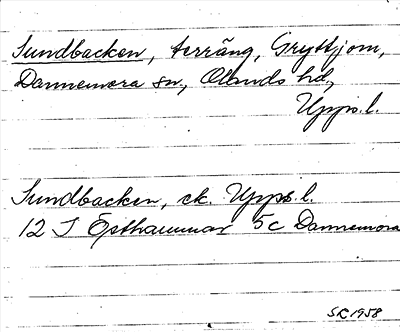 Sundbacken, terräng, Gryttjom,
Dannemora sn, Olands hd,
Upps. l.
Sundbacken, ek. Upps. l.
12 I Östhammar 5c Dannemora
SR 1958